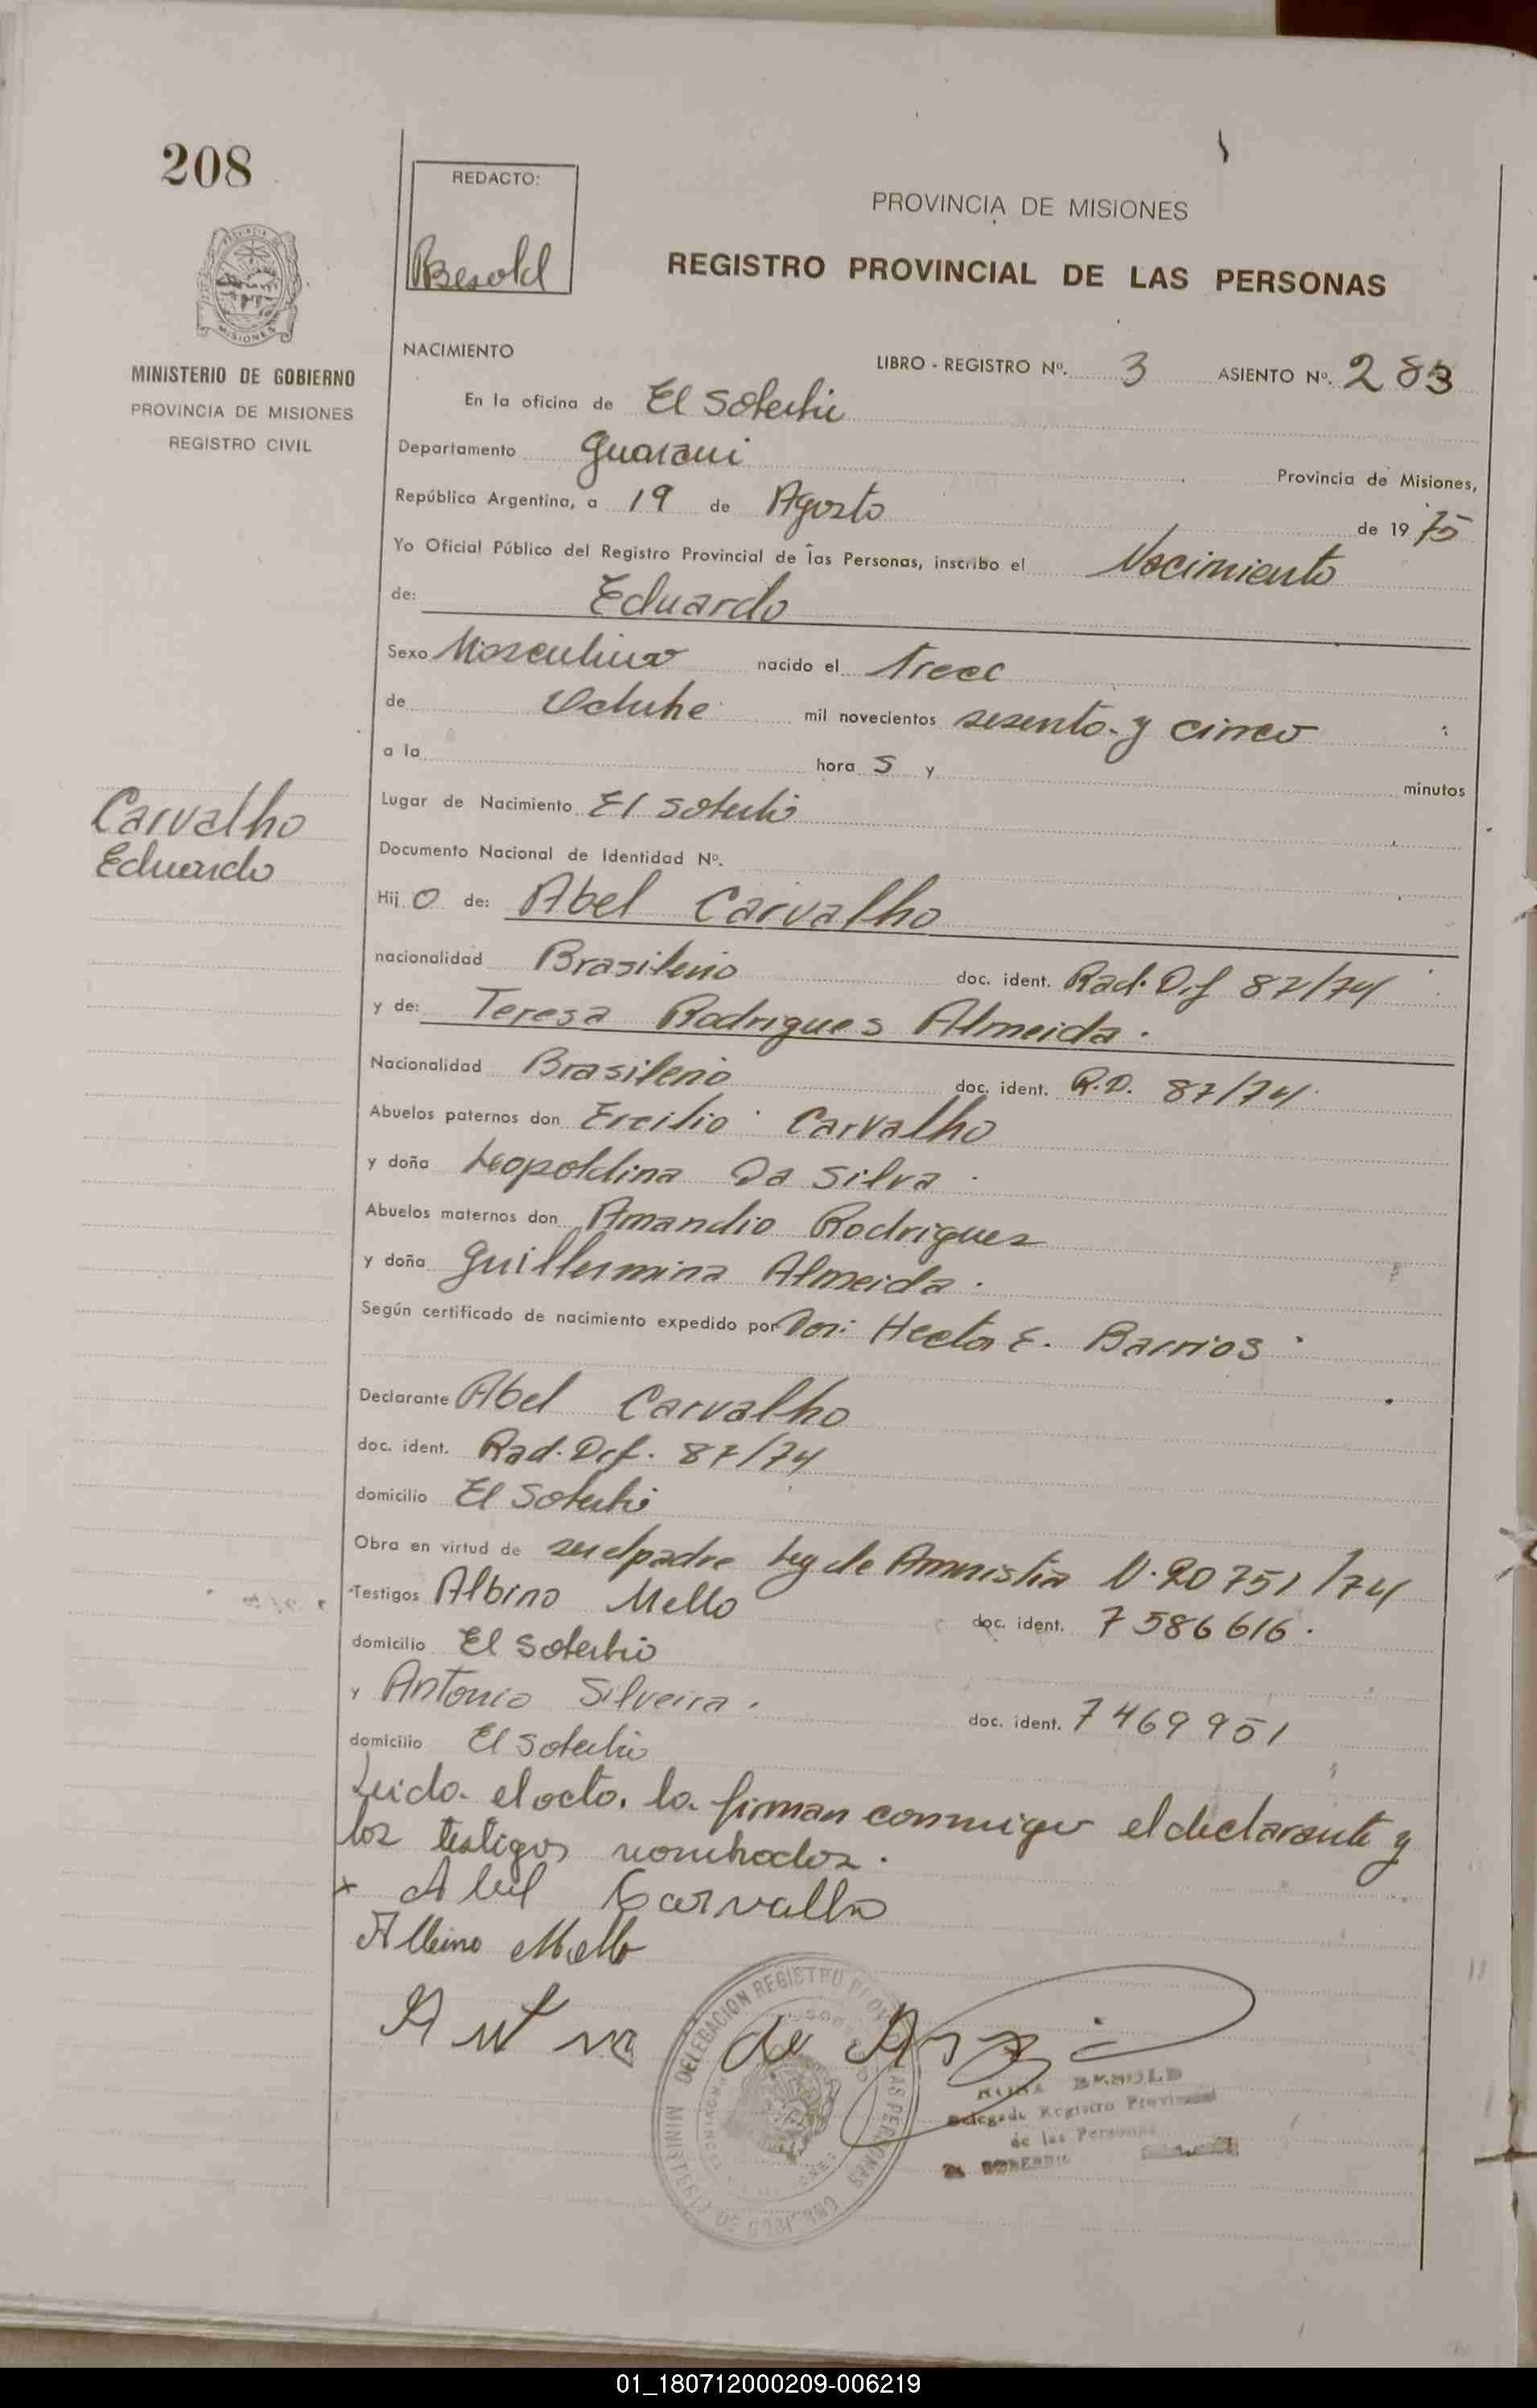 208
REDACTO:
Besold
PROVINCIA DE MISIONES
REGISTRO PROVINCIAL DE LAS PERSONAS
MINISTERIO DE GOBIERNO
PROVINCIA DE MISIONES
REGISTRO CIVIL
NACIMIENTO
LIBRO - REGISTRO Nº. 3 ASIENTO Nº. 283
En la oficina de El Soberbio
Departamento Guarani Provincia de Misiones,
República Argentina, a 19 de Agosto de 1975
Yo Oficial Público del Registro Provincial de las Personas, inscribo el Nacimiento
de: Eduardo
Sexo Masculino nacido el trece
de Octubre mil novecientos sesenta y cinco
a la hora 5 y minutos
Lugar de Nacimiento El Soberbio
Carvalho
Eduardo
Documento Nacional de Identidad Nº.
Hij o de: Abel Carvalho
nacionalidad Brasileño doc. ident. Rad. Def 87/74
y de: Teresa Rodrigues Almeida.
Nacionalidad Brasileño doc. ident. R.D. 87/74
Abuelos paternos don Ercilio Carvalho
y doña Leopoldina Da Silva
Abuelos maternos don Amandio Rodriguez
y doña Guillermina Almeida.
Según certificado de nacimiento expedido por Don: Hector E. Barrios
Declarante Abel Carvalho
doc. ident. Rad. Def. 87/74
domicilio El Soberbio
Obra en virtud de ser el padre Ley de Amnistia N. 20751/74
Testigos Albino Mello doc. ident. 7586616.
domicilio El Soberbio
y Antonio Silveira. doc. ident. 7469951
domicilio El Soberbio
Leida el acto, la firman conmigo el declarante y
los testigos nombrados.
x Abel Carvalho
Albino Mello
DELEGACION REGISTRO PROV LAS PERSONAS
ROSA BESOLD
Delegada Registro Provincial
de las Personas
EL SOBERBIO
01_180712000209-006219